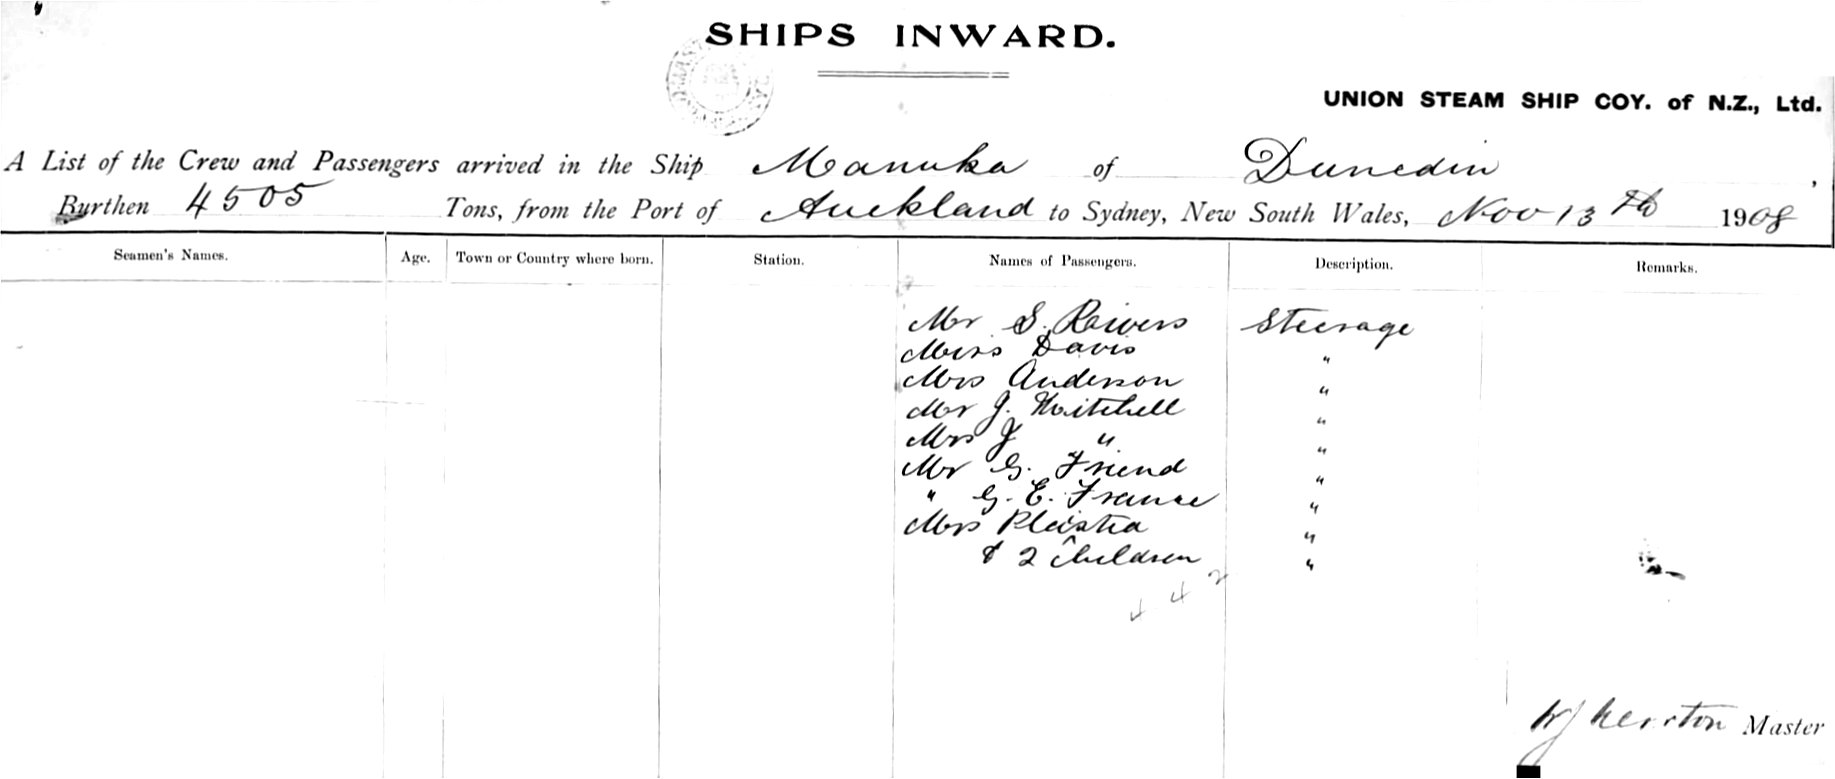 SHIPS INWARD.
UNION STEAM SHIP COY. of N.Z., Ltd.
A List of the Crew and Passengers arrived in the Ship Manuka of Dunedin ,
Burthen 4505 Tons, from the Port of Auckland to Sydney, New South Wales, Nov 13th 1908
Seamen's Names. Age. Town or Country where born. Station. Names of Passengers. Description. Remarks.
Mr S. Rivers Steerage
Miss Davis "
Mrs Anderson "
Mr J. Mitchell "
Mrs J " "
Mr G. Friend "
" G. E. France "
Mrs "
& 2 Children "
4 4 2
Master